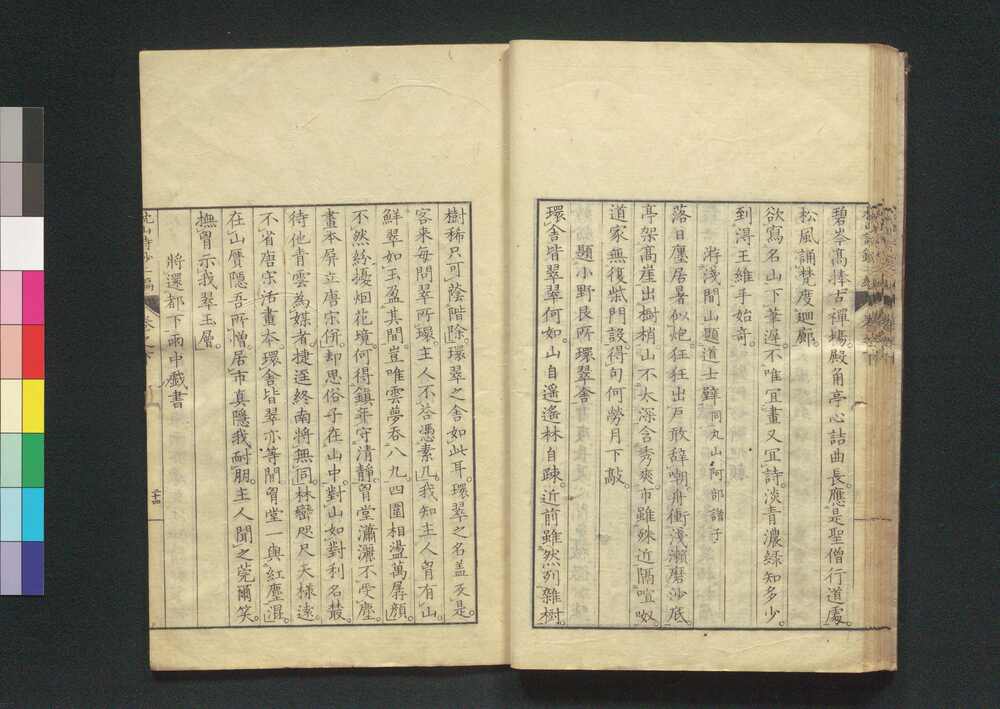 碧岑高捧古禪場。殿角亭心詰曲長。應是聖僧行道處。
松風誦梵度廻廊。
欲寫名山下筆遲。不唯冝畫又冝詩。淡青濃緑知多少。
到得王維手始奇。
游淺間山題道士壁 同丸山阿部諸子
落日塵居暑似炮。狂狂出戸敢辭嘲。舟衝淺瀨磨沙底。
亭架高崖出樹梢。山不太深含秀爽。市雖殊近隔喧呶。
道家無復柴門設。得句何勞月下敲。
題小野良所環翠舍
環舍皆翠翠何如。山自遙遙林自疎。近前雖然列雜樹。
樹稀只可蔭階除。環翠之舍如此耳。環翠之名盖亥是。
客来毎問翠所環。主人不荅憑素几。我知主人胷有山。
鮮翠如玉盈其間。豈唯雲夢吞八九。四圍相盪萬孱顔。
不然紛擾烟花境。何得鎮年守清靜。胷堂瀟灑不受塵。
畫本屏立唐宋併。却思俗子在山中。對山如對利名叢。
待他青雲為媒者。捷逕終南將無同。林巒咫尺天様遠。
不省唐宋活畫本。環舍皆翠亦等閒。胷堂一與紅塵混。
在山贋隱吾所憎。居市真隱我耐朋。主人聞之莞爾笑。
撫胷示我翠玉層。
將還都下雨中戲書
廿四